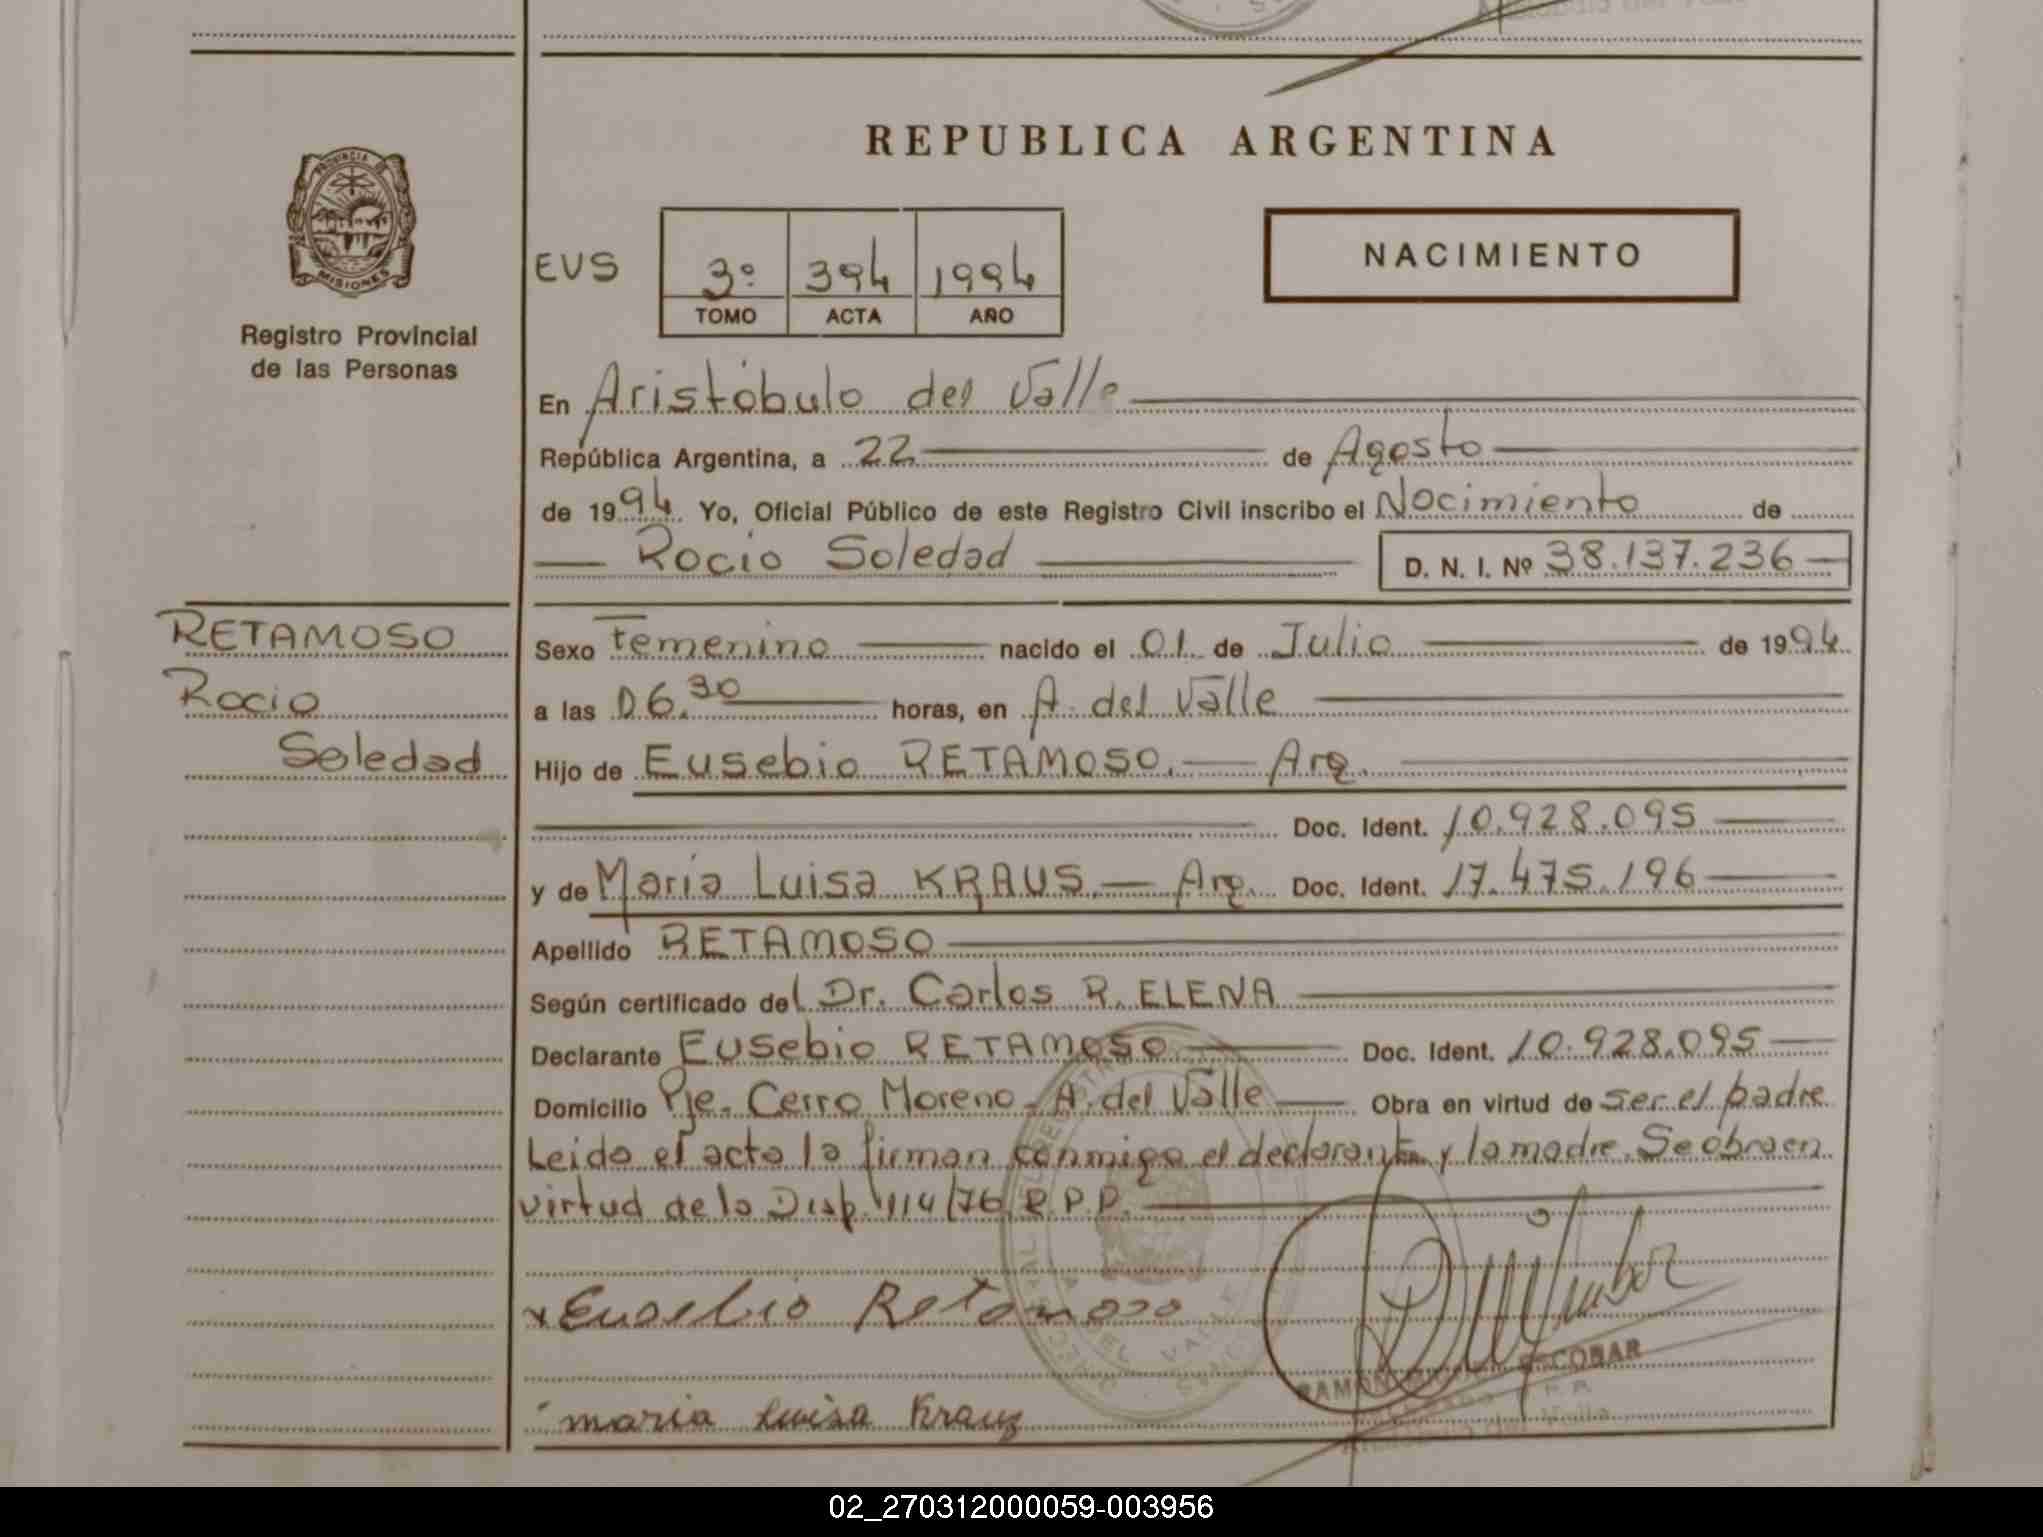 REPUBLICA ARGENTINA
PROVINCIA DE
MISIONES
Registro Provincial
de las Personas
EVS
3º 394 1994
TOMO ACTA AÑO
NACIMIENTO
En Aristóbulo del Valle
República Argentina, a 22 de Agosto
de 1994 Yo, Oficial Público de este Registro Civil inscribo el Nacimiento de
Rocio Soledad D. N. I. Nº 38.137.236
RETAMOSO
Rocio
Soledad
Sexo Femenino nacido el 01 de Julio de 1994
a las 06.30 horas, en A. del Valle
Hijo de Eusebio RETAMOSO. — Arg.
Doc. Ident. 10.928.095
y de María Luisa KRAUS. — Arg. Doc. Ident. 17.475.196
Apellido RETAMOSO
Según certificado del Dr. Carlos R. ELENA
Declarante Eusebio RETAMOSO Doc. Ident. 10.928.095
Domicilio Pje. Cerro Moreno - A. del Valle Obra en virtud de ser el padre
Leida el acta la firman conmigo el declarante y la madre. Se obra en
virtud de la Disp. 114/76 R.P.P.
x Eusebio Retamoso
maria luisa Kraus
ESCOBAR
del Valle
02_270312000059-003956